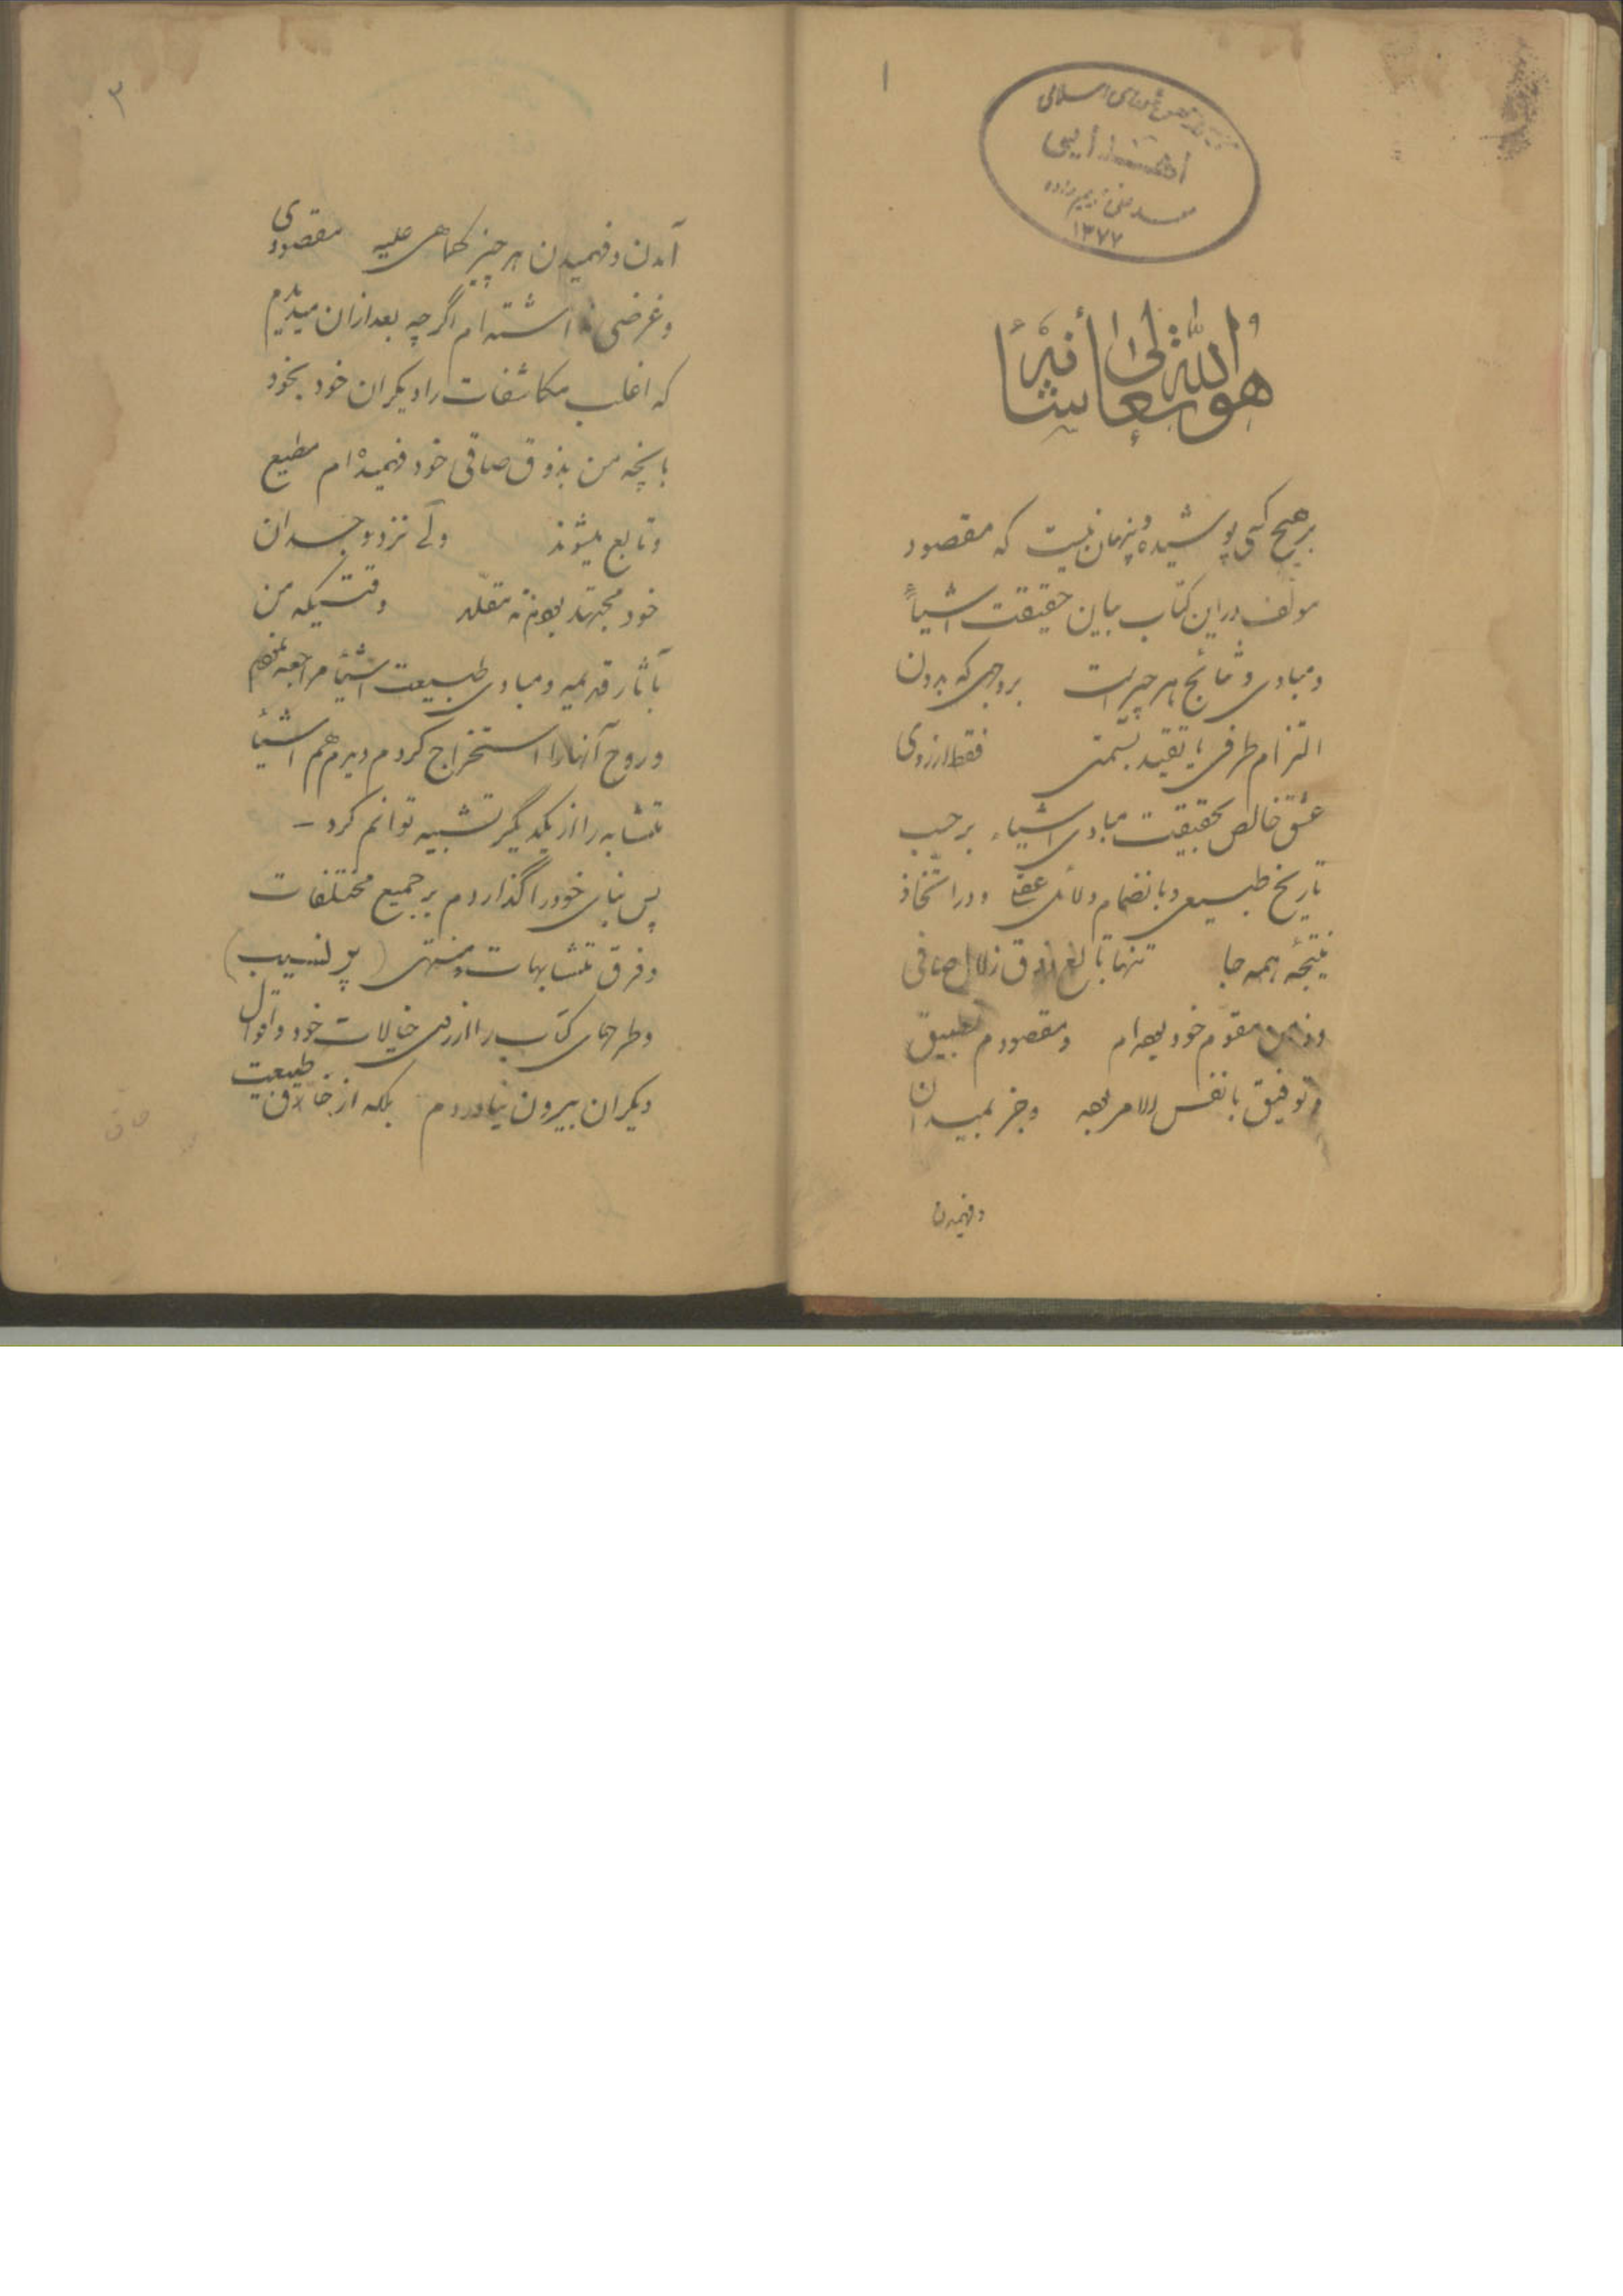 ۱
اهدائی
۱۳۷۷
هو الله تعالی شأنه
بر هیچ کسی پوشیده و پنهان نیست که مقصود
مولف در این کتاب بیان حقیقت اشیاء
و مبادی و نتائج هر چیز است بروجهی که بدون
التزام طرفی یا تقید بسمتی فقط از روی
عشق خالص بحقیقت مبادی اشیاء بر حسب
تاریخ طبیعی و با نضمام دلائل عقلی و در اتخاذ
نتیجه همه جا تنها تابع ذوق زلال صافی
و ذهن مقوم خود بوده ام و مقصودم تطبیق
و توفیق با نفس الامر بوده و جز بمیدان
و فهمیدن
۳
آمدن و فهمیدن هر چیز کماهی علیه مقصودی
و غرضی نداشته ام اگر چه بعد از ان میدیدیم
که اغلب مکاشفات را دیکران خود بخود
بانچه من بذوق صافی خود فهمیده ام مطیع
و تابع میشوند ولی نزد وجدان
خود مجتهد بودم نه مقلد وقتیکه من
بآثار قدیمه و مبادی طبیعت اشیاء مراجعه نمودم
و روح آنها را استخراج کردم دیدم هم اشیاء
متشابه را از یکدیگر تشبیه توانم کرد –
پس بنای خود را گذاردم بر جمیع مختلفات
و فرق متشابهات و منتهی (پرنسیب)
و طرحهای کتاب را از روی خیالات خود و اقوال
دیکران بیرون نیاوردم بلکه از خلاق طبیعت